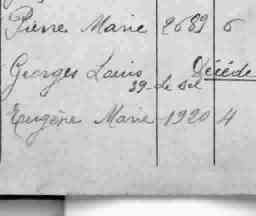 Pierre Marie 2689 6
Georges Louis Décédé
39 - de Sel
Eugène Marie 1920 4